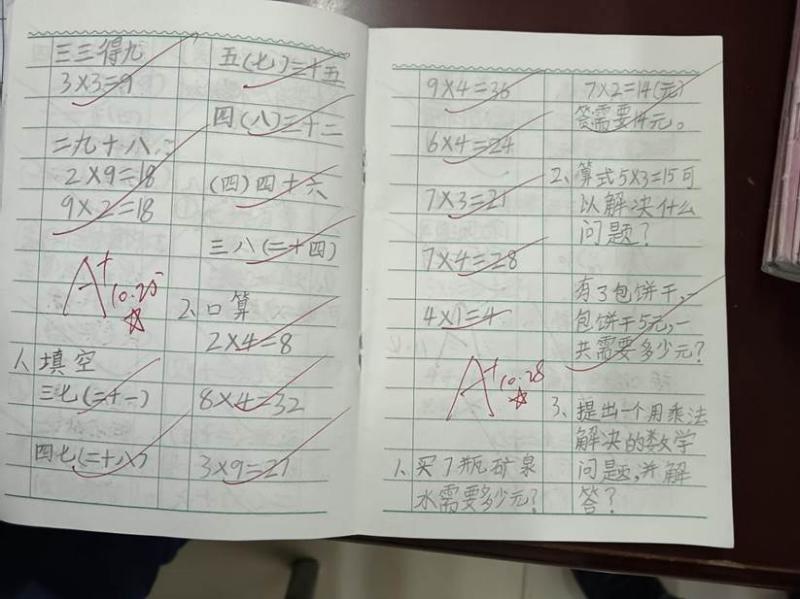 三三得九
3×3=9
二九十八
2×9=18
9×2=18
A+
10.25
1、填空
三七(二十一)
四七(二十八)
五(七)三十五
四(八)三十二
(四)四十六
三八(二十四)
2、口算
2×4=8
8×4=32
3×9=27
9×4=36
6×4=24
7×3=21
7×4=28
4×1=4
A+
10.28
1、买7瓶矿泉
水需要多少元?
7×2=14(元)
答需要14元。
2、算式5×3=15可
以解决什么
问题?
有3包饼干,一
包饼干5元,一
共需要多少元?
3、提出一个用乘法
解决的数学
问题,并解
答?